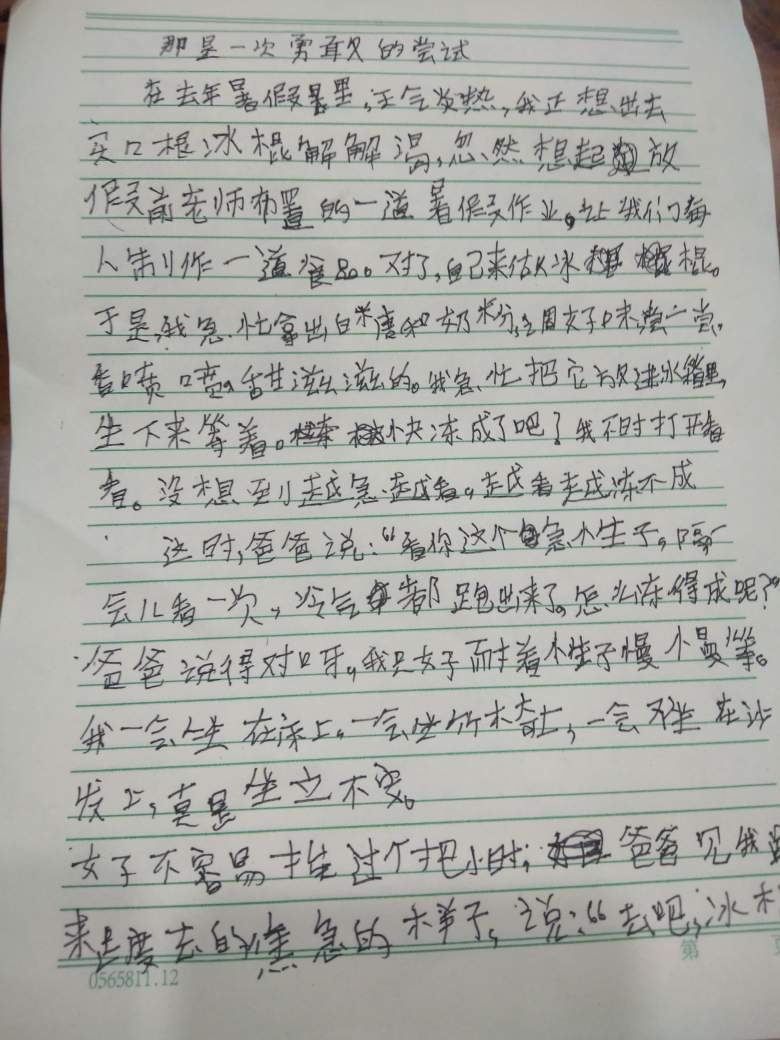 那是一次勇敢的尝试
在去年暑假里,天气炎热,我正想出去
买口根冰棍解解渴,忽然想起放
假前老师布置的一道暑假作业。让我们每
人制作一道食品。对了,自己来做冰棍。
于是,我急忙拿出白糖和奶粉,调好味尝一尝,
香喷喷,甜滋滋的。我急忙把它放进冰箱里,
坐下来等着。快冻成了吧?我不时打开看
看。没想到越急越看,越看越冻不成
这时,爸爸说:“看你这个急性子,隔一
会儿看一次,冷气都跑出来了,怎么冻得成呢?”
爸爸说得对呀,我只好耐着性子慢慢等。
我一会坐在床上,一会坐竹椅上,一会坐在沙
发上,真是坐立不安。
好不容易挨过个把小时,爸爸见我踱
来踱去的焦急的样子,说:“去吧,冰棍
第 页
0565811.12